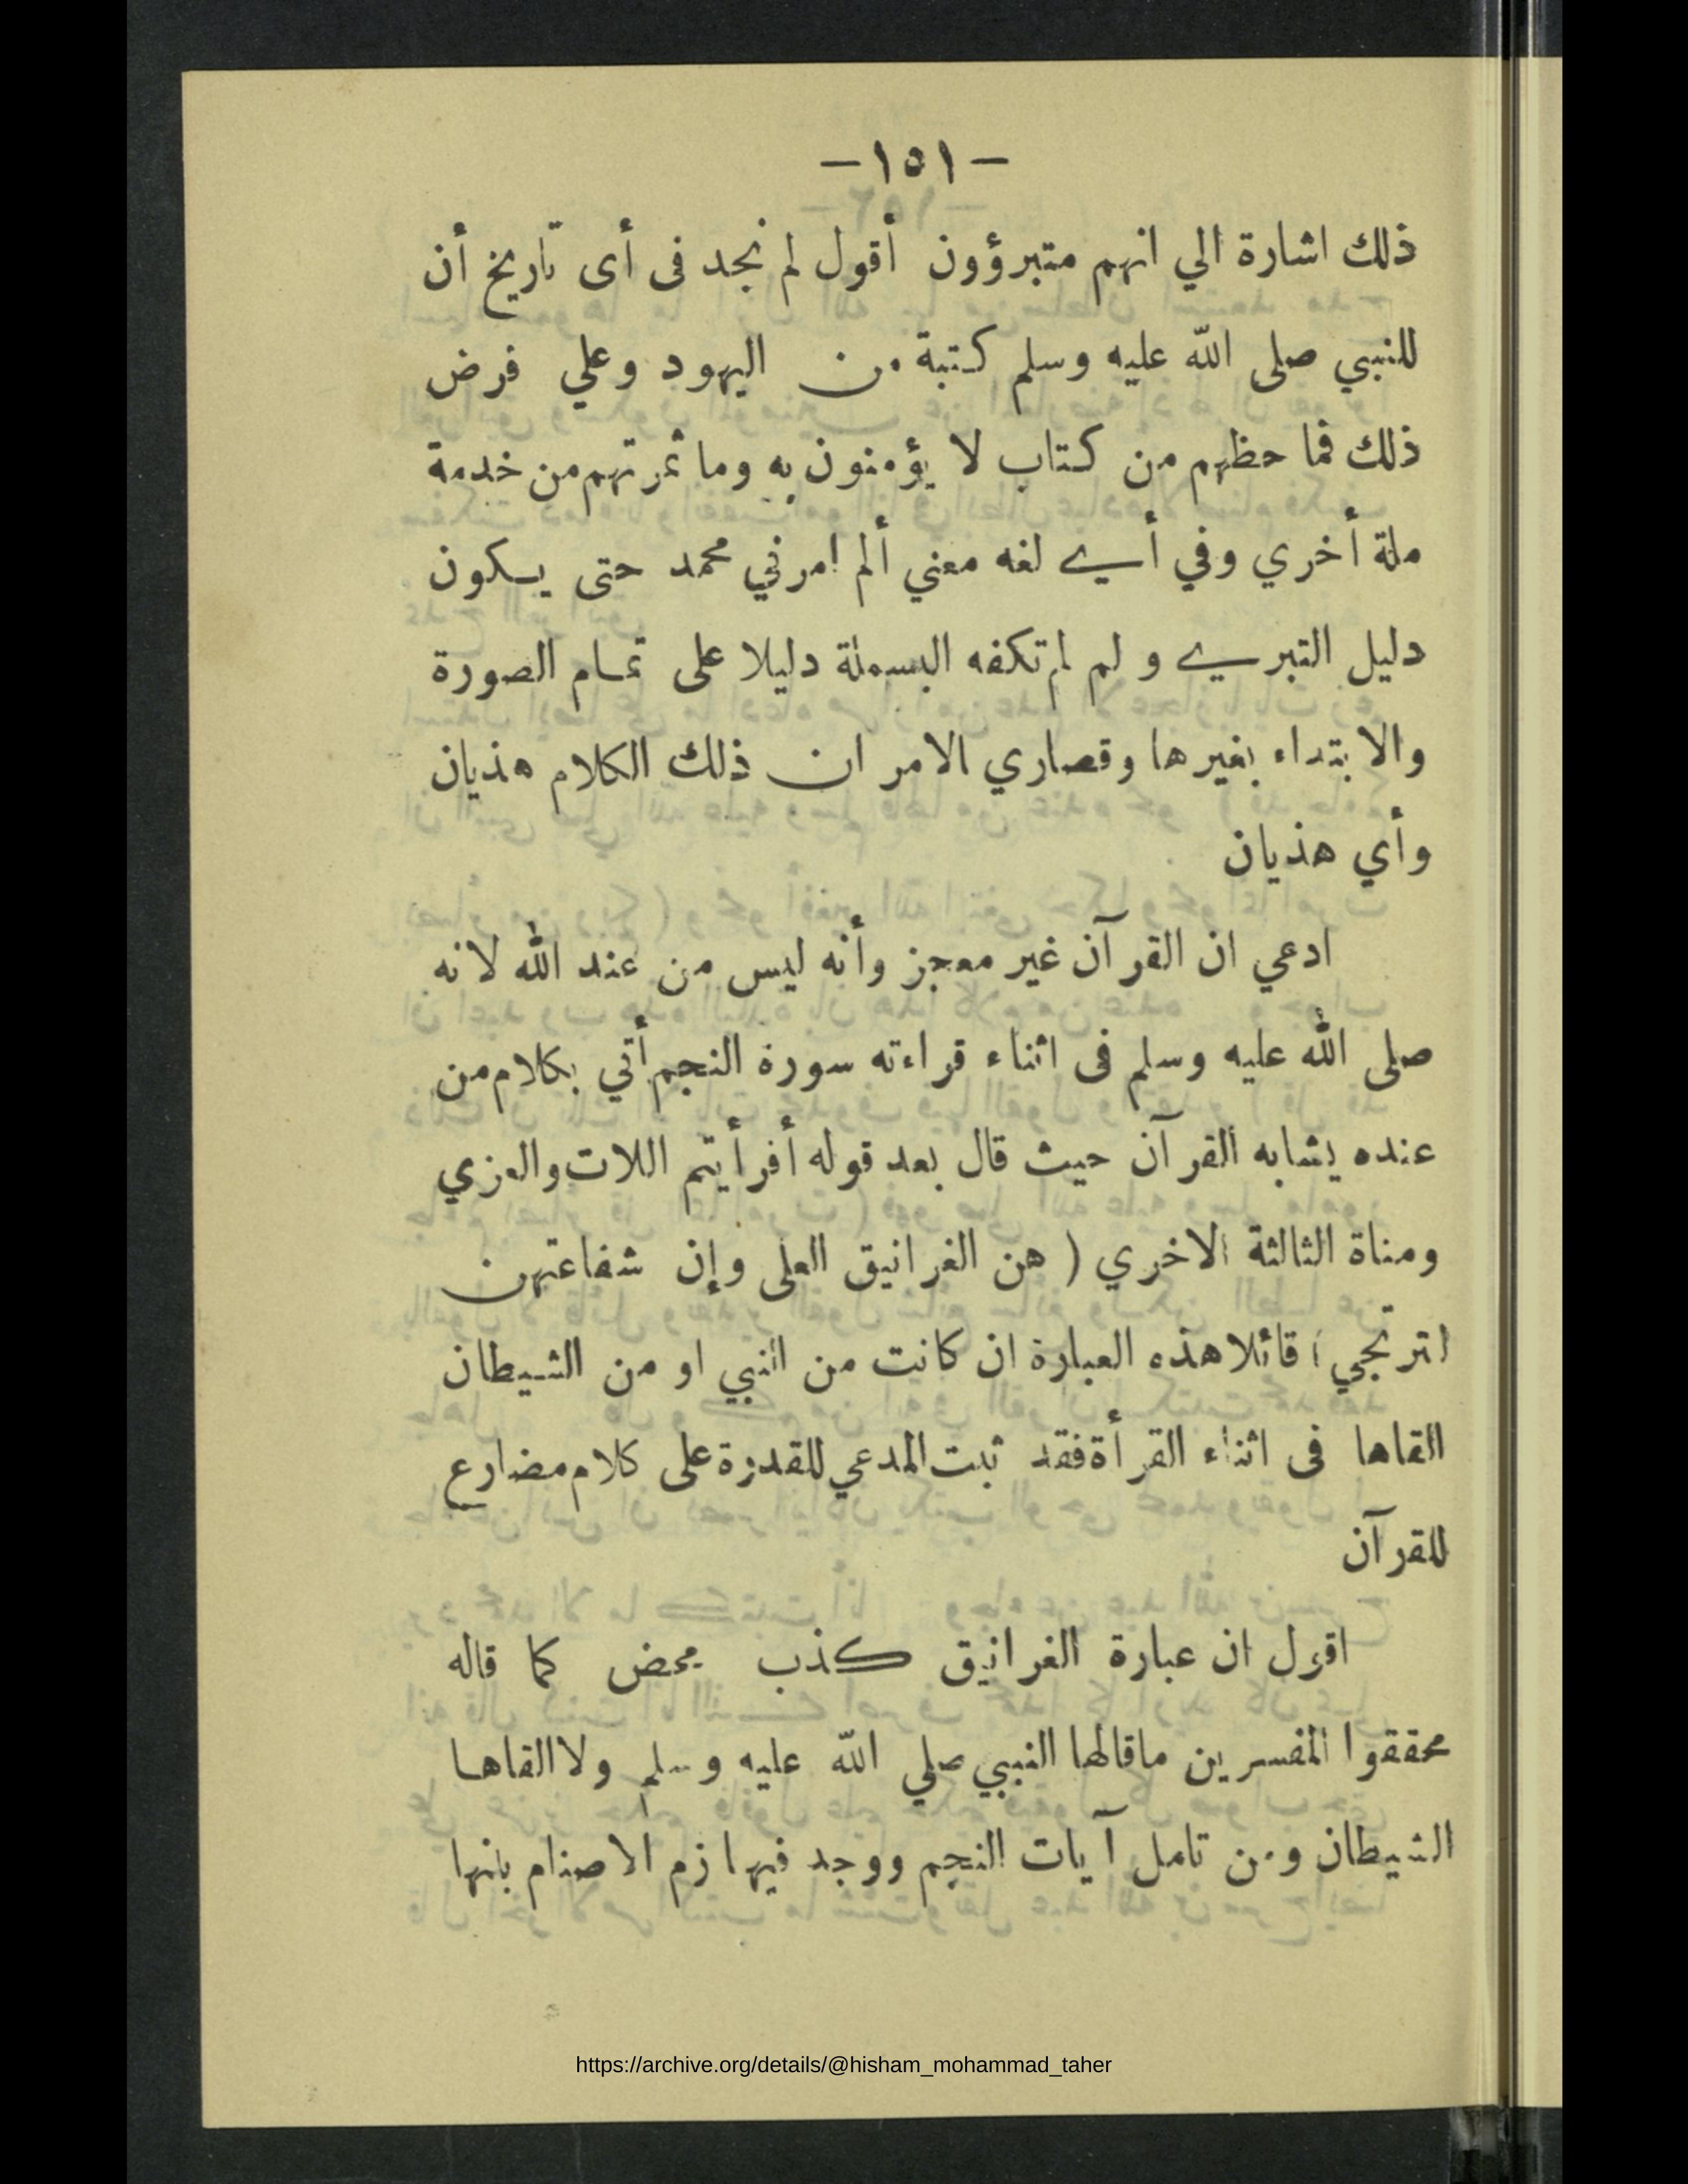 — ١٥١ —
ذلك اشارة الي انهم متبرؤون أقول لم نجد فى أى تاريخ أن
للنبي صلى الله عليه وسلم كتبة من اليهود وعلي فرض
ذلك فما حظهم من كتاب لا يؤمنون به وما ثمرتهم من خدمة
ملة أخري وفي أي لغه معني ألم امرني محمد حتى يكون
دليل التبري و لم لم تكفه البسملة دليلا على تمام الصورة
والابتداء بغيرها وقصاري الامر ان ذلك الكلام هذيان
وأي هذيان
ادعي ان القرآن غير معجز وأنه ليس من عند الله لانه
صلى الله عليه وسلم فى اثناء قراءته سورة النجم أتي بكلام من
عنده يشابه القرآن حيث قال بعد قوله أفرأيتم اللات والعزي
ومناة الثالثة الاخري ( هن الغرانيق العلى وإن شفاعتهن
لترتجي ) قائلا هذه العبارة ان كانت من النبي او من الشيطان
القاها فى اثناء القرأة فقد ثبت المدعي للقدرة على كلام مضارع
للقرآن
اقول ان عبارة الغرانيق كذب محض كما قاله
محققوا المفسرين ماقالها النبي صلي الله عليه وسلم ولا القاها
الشيطان ومن تامل آيات النجم ووجد فيها زم الاصنام بانها
https://archive.org/details/@hisham_mohammad_taher